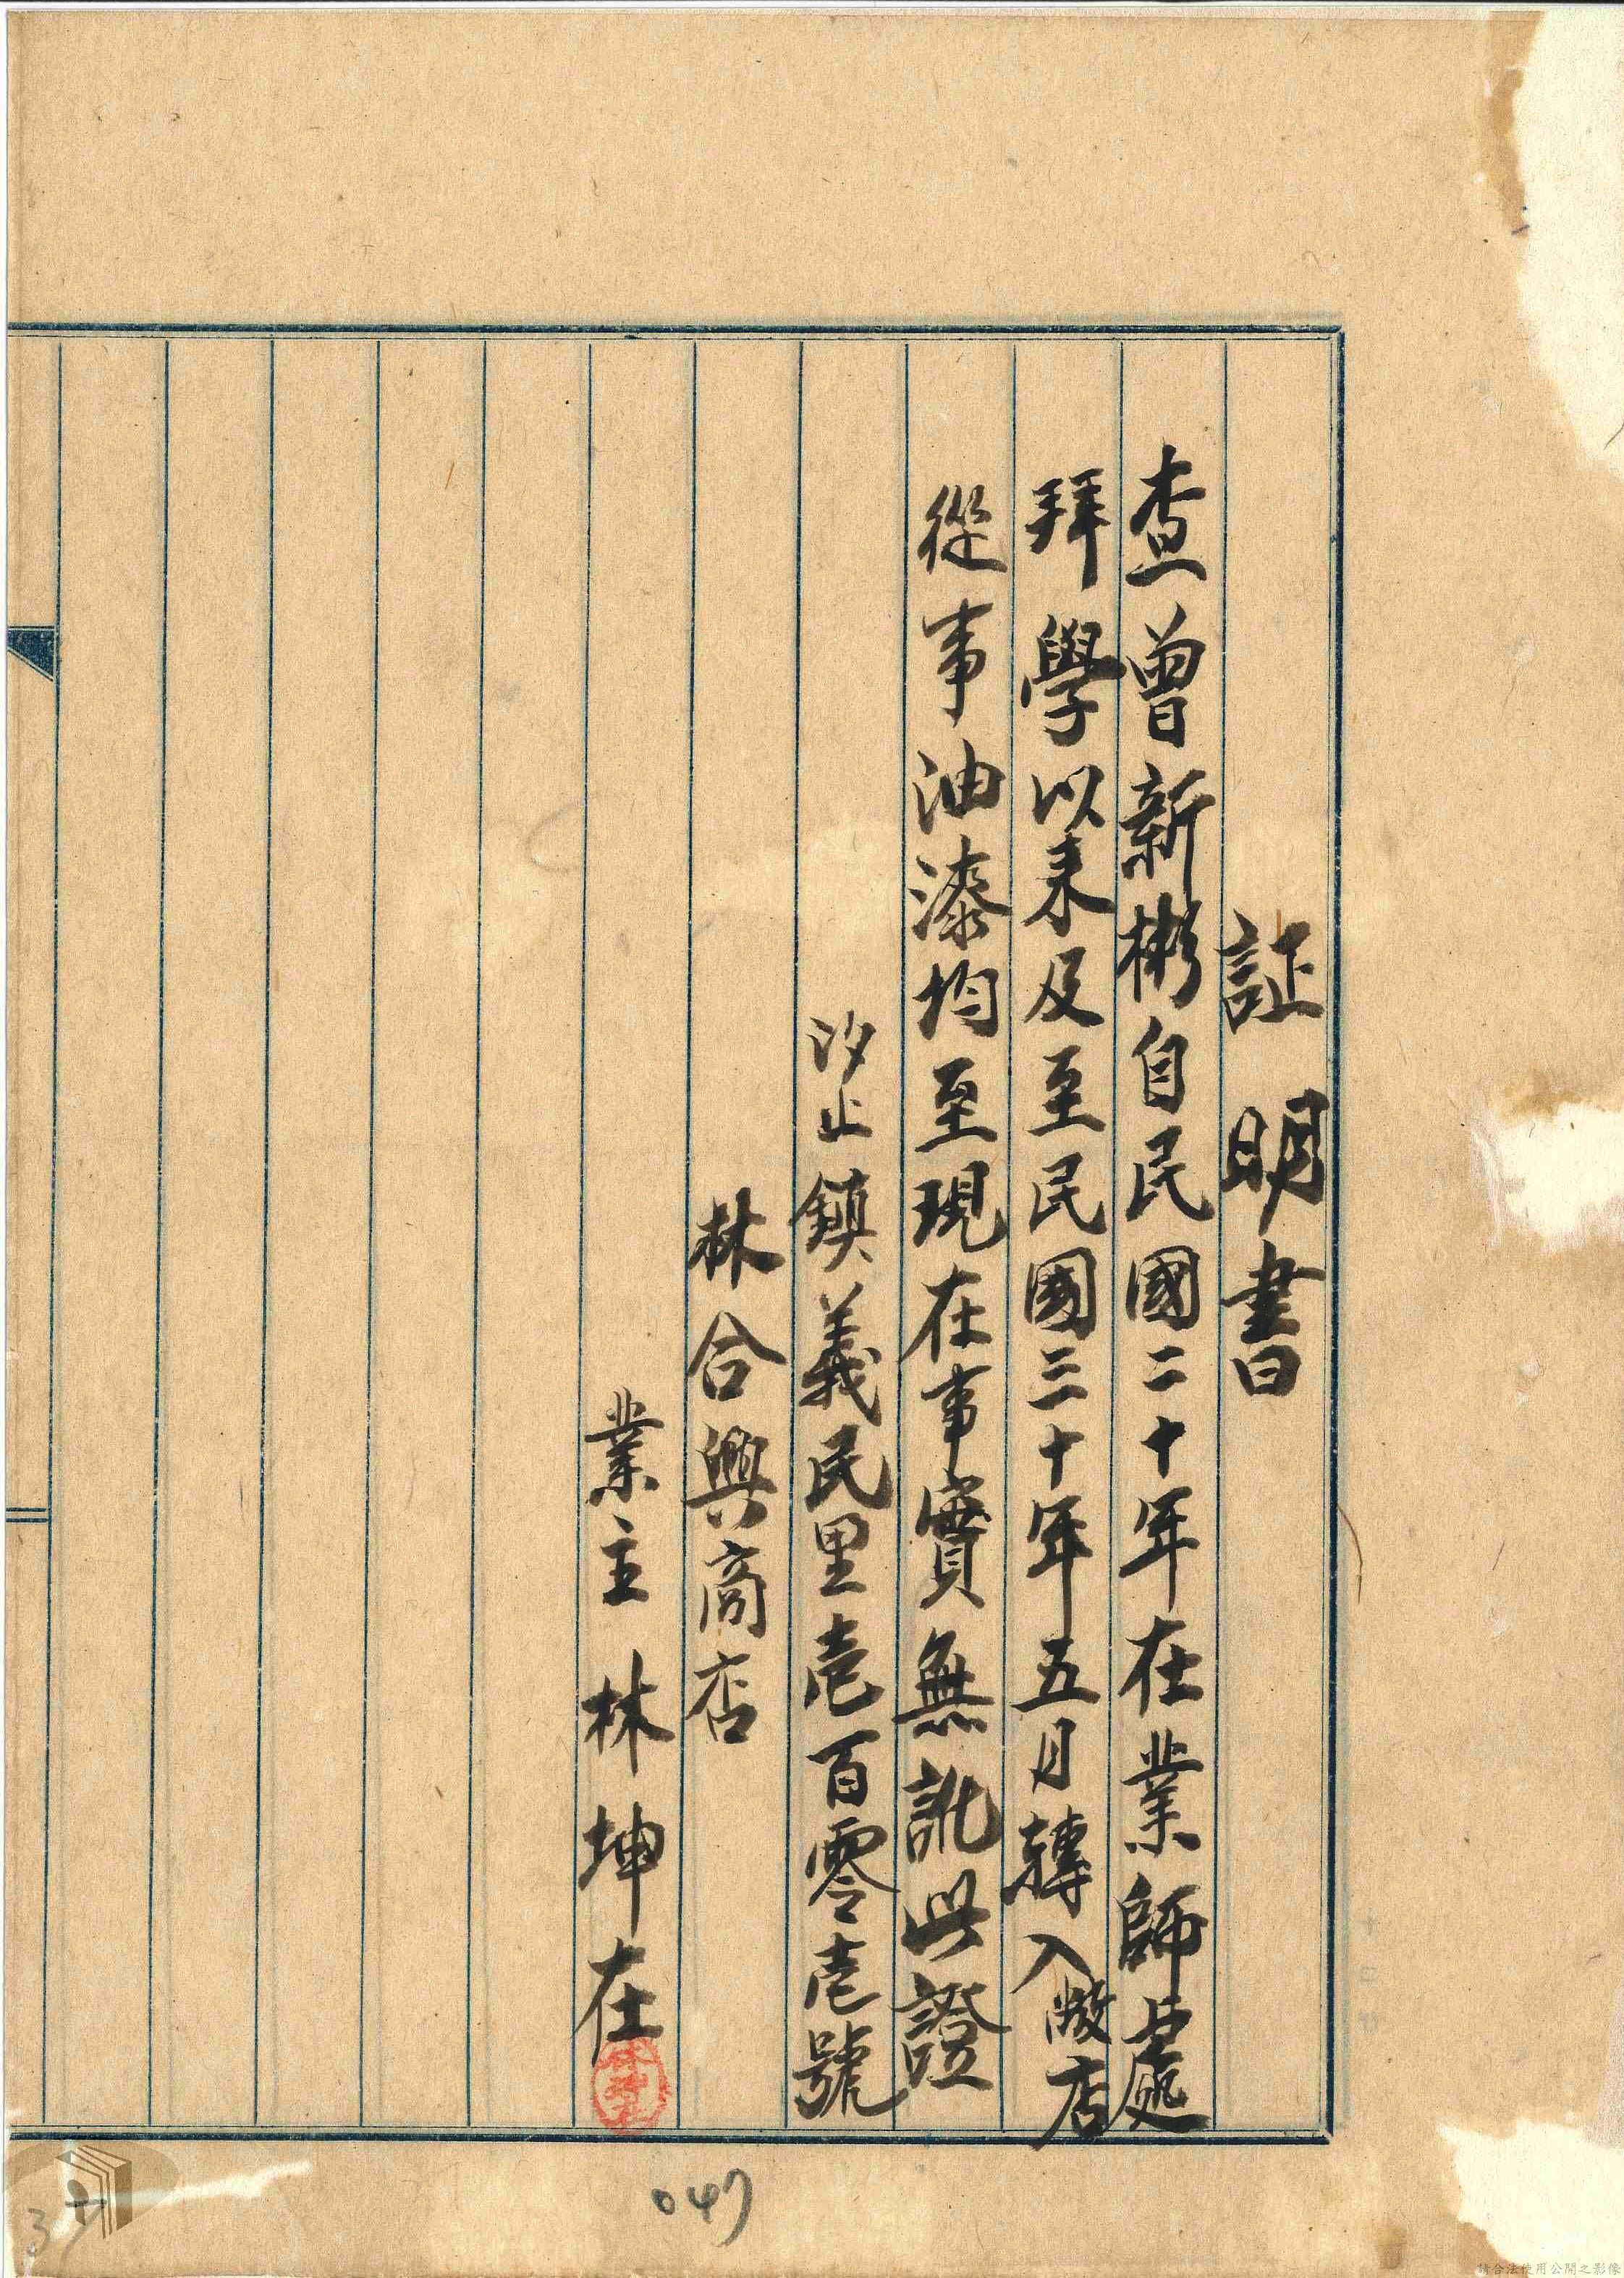 証明書
查曾新彬自民國二十年在業師處
拜學以来及至民國三十年五月轉入敝店
從事油漆均至現在事實無訛此證
汐止鎮義民里壱百零壱號
林合興商店
業主林坤在
047
37
請合法使用公開之影像